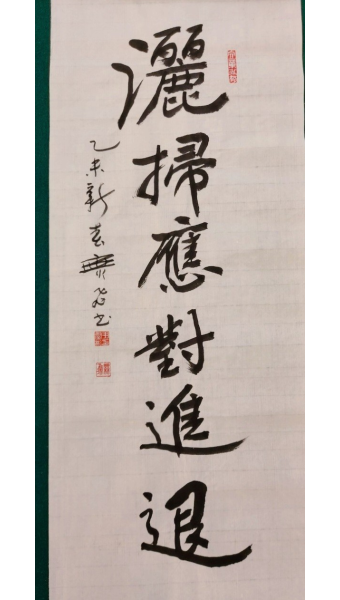 灑掃應對進退
乙未新春
書